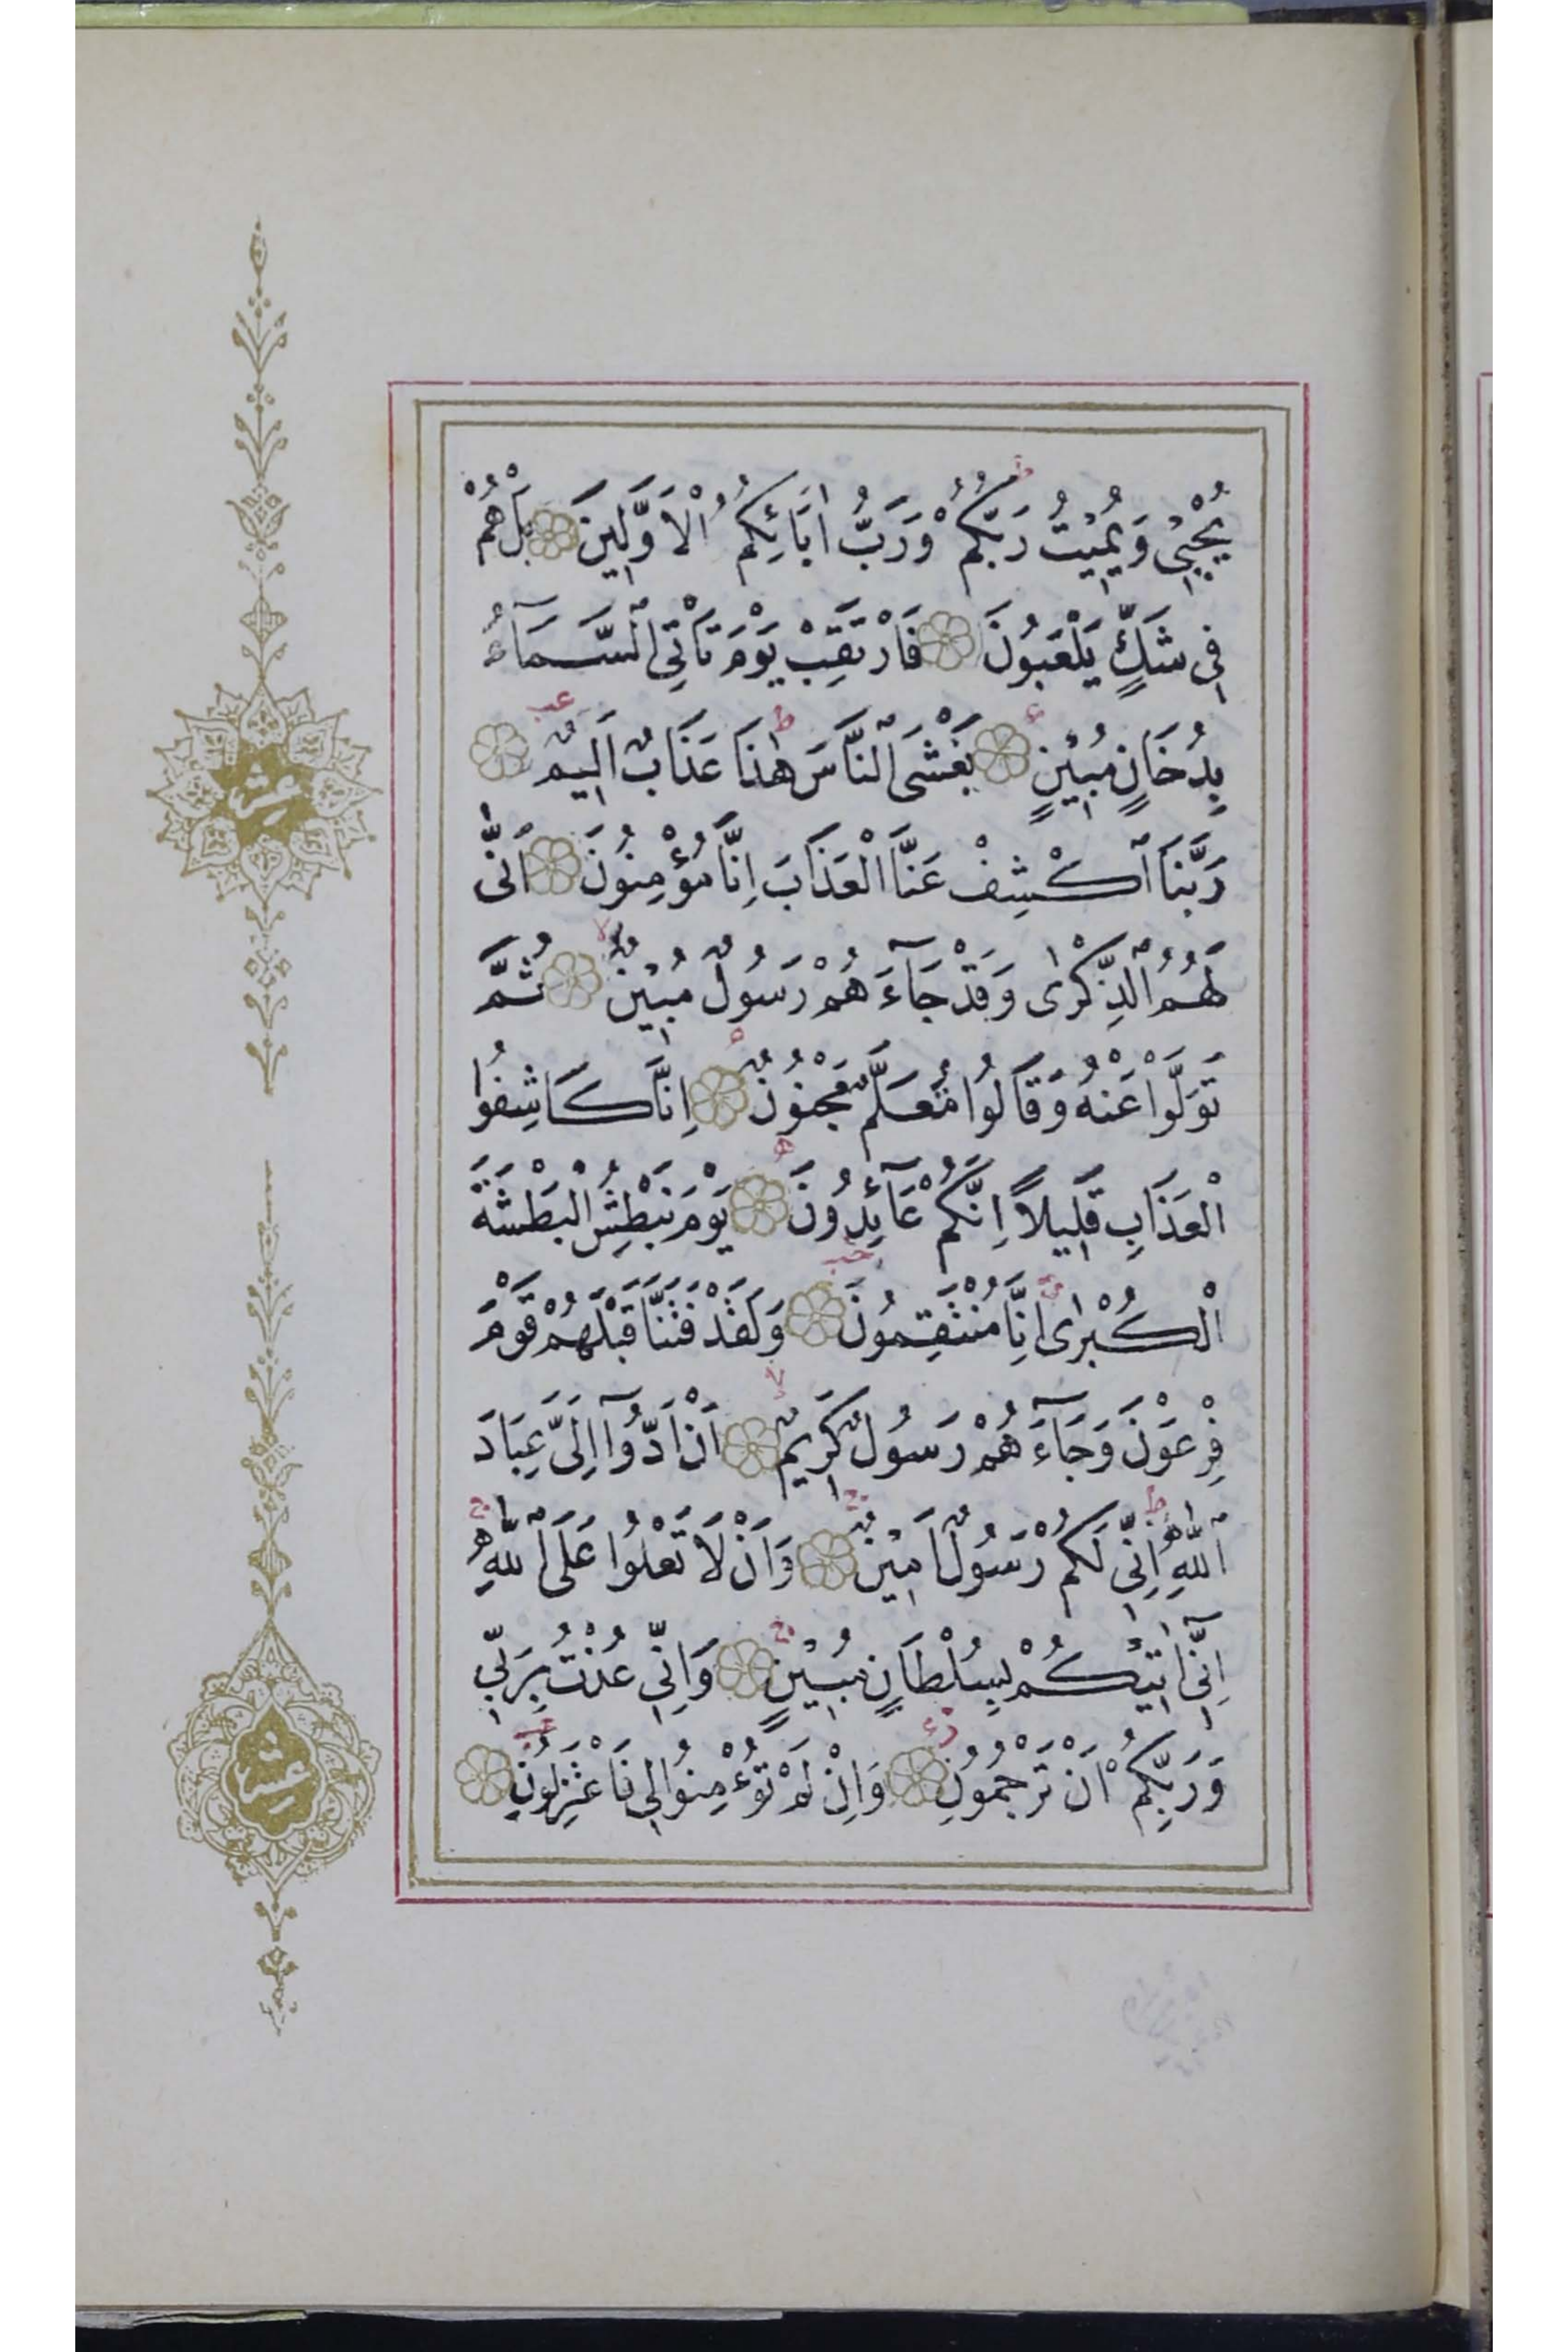 يُحْيِي وَيُمِيتُ رَبُّكُمْ وَرَبُّ اٰبَائِكُمُ الْاَوَّلِينَ بَلْ هُمْ
فِي شَكٍّ يَلْعَبُونَ فَارْتَقِبْ يَوْمَ تَاْتِي السَّمَآءُ
بِدُخَانٍ مُبِينٍ يَغْشَى النَّاسَ هٰذَا عَذَابٌ اَلِيمٌ
رَبَّنَا اكْشِفْ عَنَّا الْعَذَابَ اِنَّا مُؤْمِنُونَ اَنّٰى
لَهُمُ الذِّكْرٰى وَقَدْ جَآءَهُمْ رَسُولٌ مُبِينٌ ثُمَّ
تَوَلَّوْا عَنْهُ وَقَالُوا مُعَلَّمٌ مَجْنُونٌ اِنَّا كَاشِفُوا
الْعَذَابِ قَلِيلاً اِنَّكُمْ عَآئِدُونَ يَوْمَ نَبْطِشُ الْبَطْشَةَ
الْكُبْرٰى اِنَّا مُنْتَقِمُونَ وَلَقَدْ فَتَنَّا قَبْلَهُمْ قَوْمَ
فِرْعَوْنَ وَجَآءَهُمْ رَسُولٌ كَرِيمٌ اَنْ اَدُّوٓا اِلَيَّ عِبَادَ
اللّٰهِ اِنِّي لَكُمْ رَسُولٌ اَمِينٌ وَاَنْ لَا تَعْلُوا عَلَى اللّٰهِ
اِنِّٓي اٰتِيكُمْ بِسُلْطَانٍ مُبِينٍ وَاِنِّي عُذْتُ بِرَبِّي
وَرَبِّكُمْ اَنْ تَرْجُمُونِ وَاِنْ لَمْ تُؤْمِنُوا لِي فَاعْتَزِلُونِ
عشر
عشر